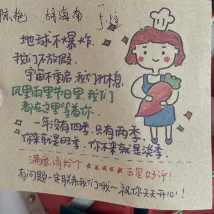 陈艳、胡海南
地球不爆炸
我们不放假
宇宙不重启 我们不休息
风里雨里节日里 我们
都在这里等着你
一年没有四季.只有两季.
你来就是旺季.你不来就是淡季.
满意请给个 ★★★★★ 五星好评!
有问题一定联系我们哦~祝你天天开心!!